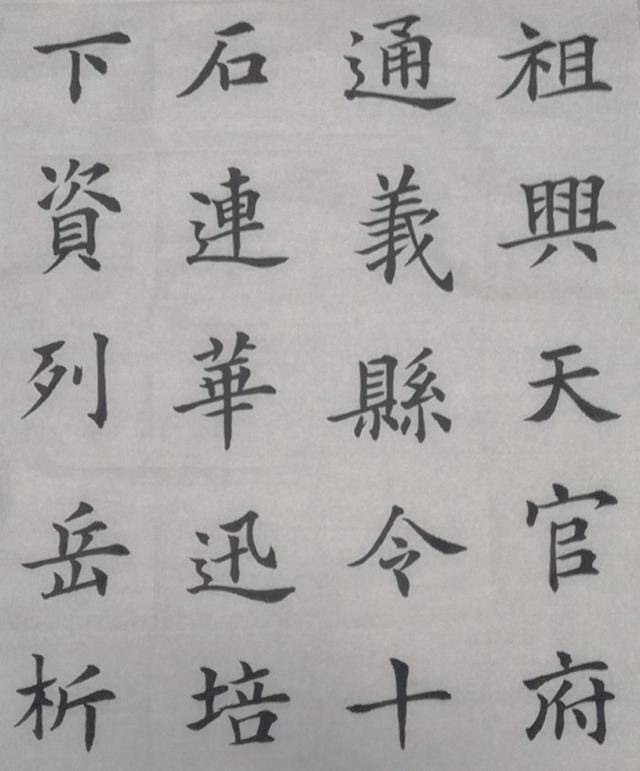 祖興天官府
通義縣令十
石連華迅培
下資列岳析